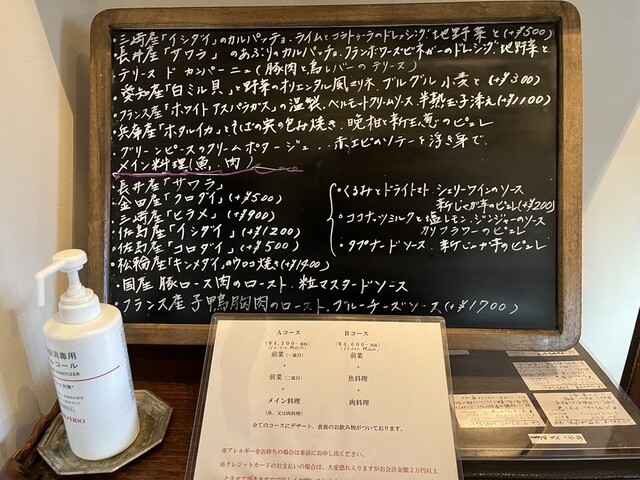 ・三崎産「イシダイ」のカルパッチョ、ライムとコラトゥーラのドレッシング 地野菜と(+¥500)
長井産「サワラ」のあぶりのカルパッチョ、フランボワーズビネガーのドレッシング 地野菜と
テリーヌ ド カンパーニュ(豚肉と鳥レバーのテリーヌ)
・愛知産「白ミル貝」と野菜のオリエンタル風マリネ、ブルグル小麦と(+¥300)
・フランス産「ホワイトアスパラガス」の温製、ベルモートクリームソース、半熟玉子添え(+¥1100)
・兵庫産「ホタルイカ」とそばの実の包み焼き、晩柑と新玉葱のピュレ
・グリーンピースのクリームポタージュ・・・赤エビのソテーを浮き身で
メイン料理(魚、肉)
・長井産「サワラ」
・金田産「クロダイ」(+¥500)
・三崎産「ヒラメ」(+¥900)
・佐島産「イシダイ」(+¥1200)
・佐島産「コロダイ」(+¥500)
・松輪産「キンメダイ」のウロコ焼き(+¥1400)
・くるみとドライトマト シェリーワインのソース
新じゃが芋のピュレ(+¥200)
・ココナッツミルクと塩レモン、ジンジャーのソース
カリフラワーのピュレ
・タプナードソース 新じゃが芋のピュレ
・国産 豚ロース肉のロースト、粒マスタードソース
・フランス産 子鴨胸肉のロースト、ブルーチーズソース(+¥1700)
Aコース
(¥4,100-税抜)
前菜(一皿目)
+
前菜(二皿目)
+
メイン料理
(魚、又は肉料理)
Bコース
(¥4,600-税抜)
前菜
+
魚料理
+
肉料理
全てのコースにデザート、食後のお飲み物がついております。
※アレルギーをお持ちの場合は事前にお申し出ください。
※クレジットカードのお支払いの場合は、大変恐れ入りますがお会計金額2万円以上
消毒用
コール